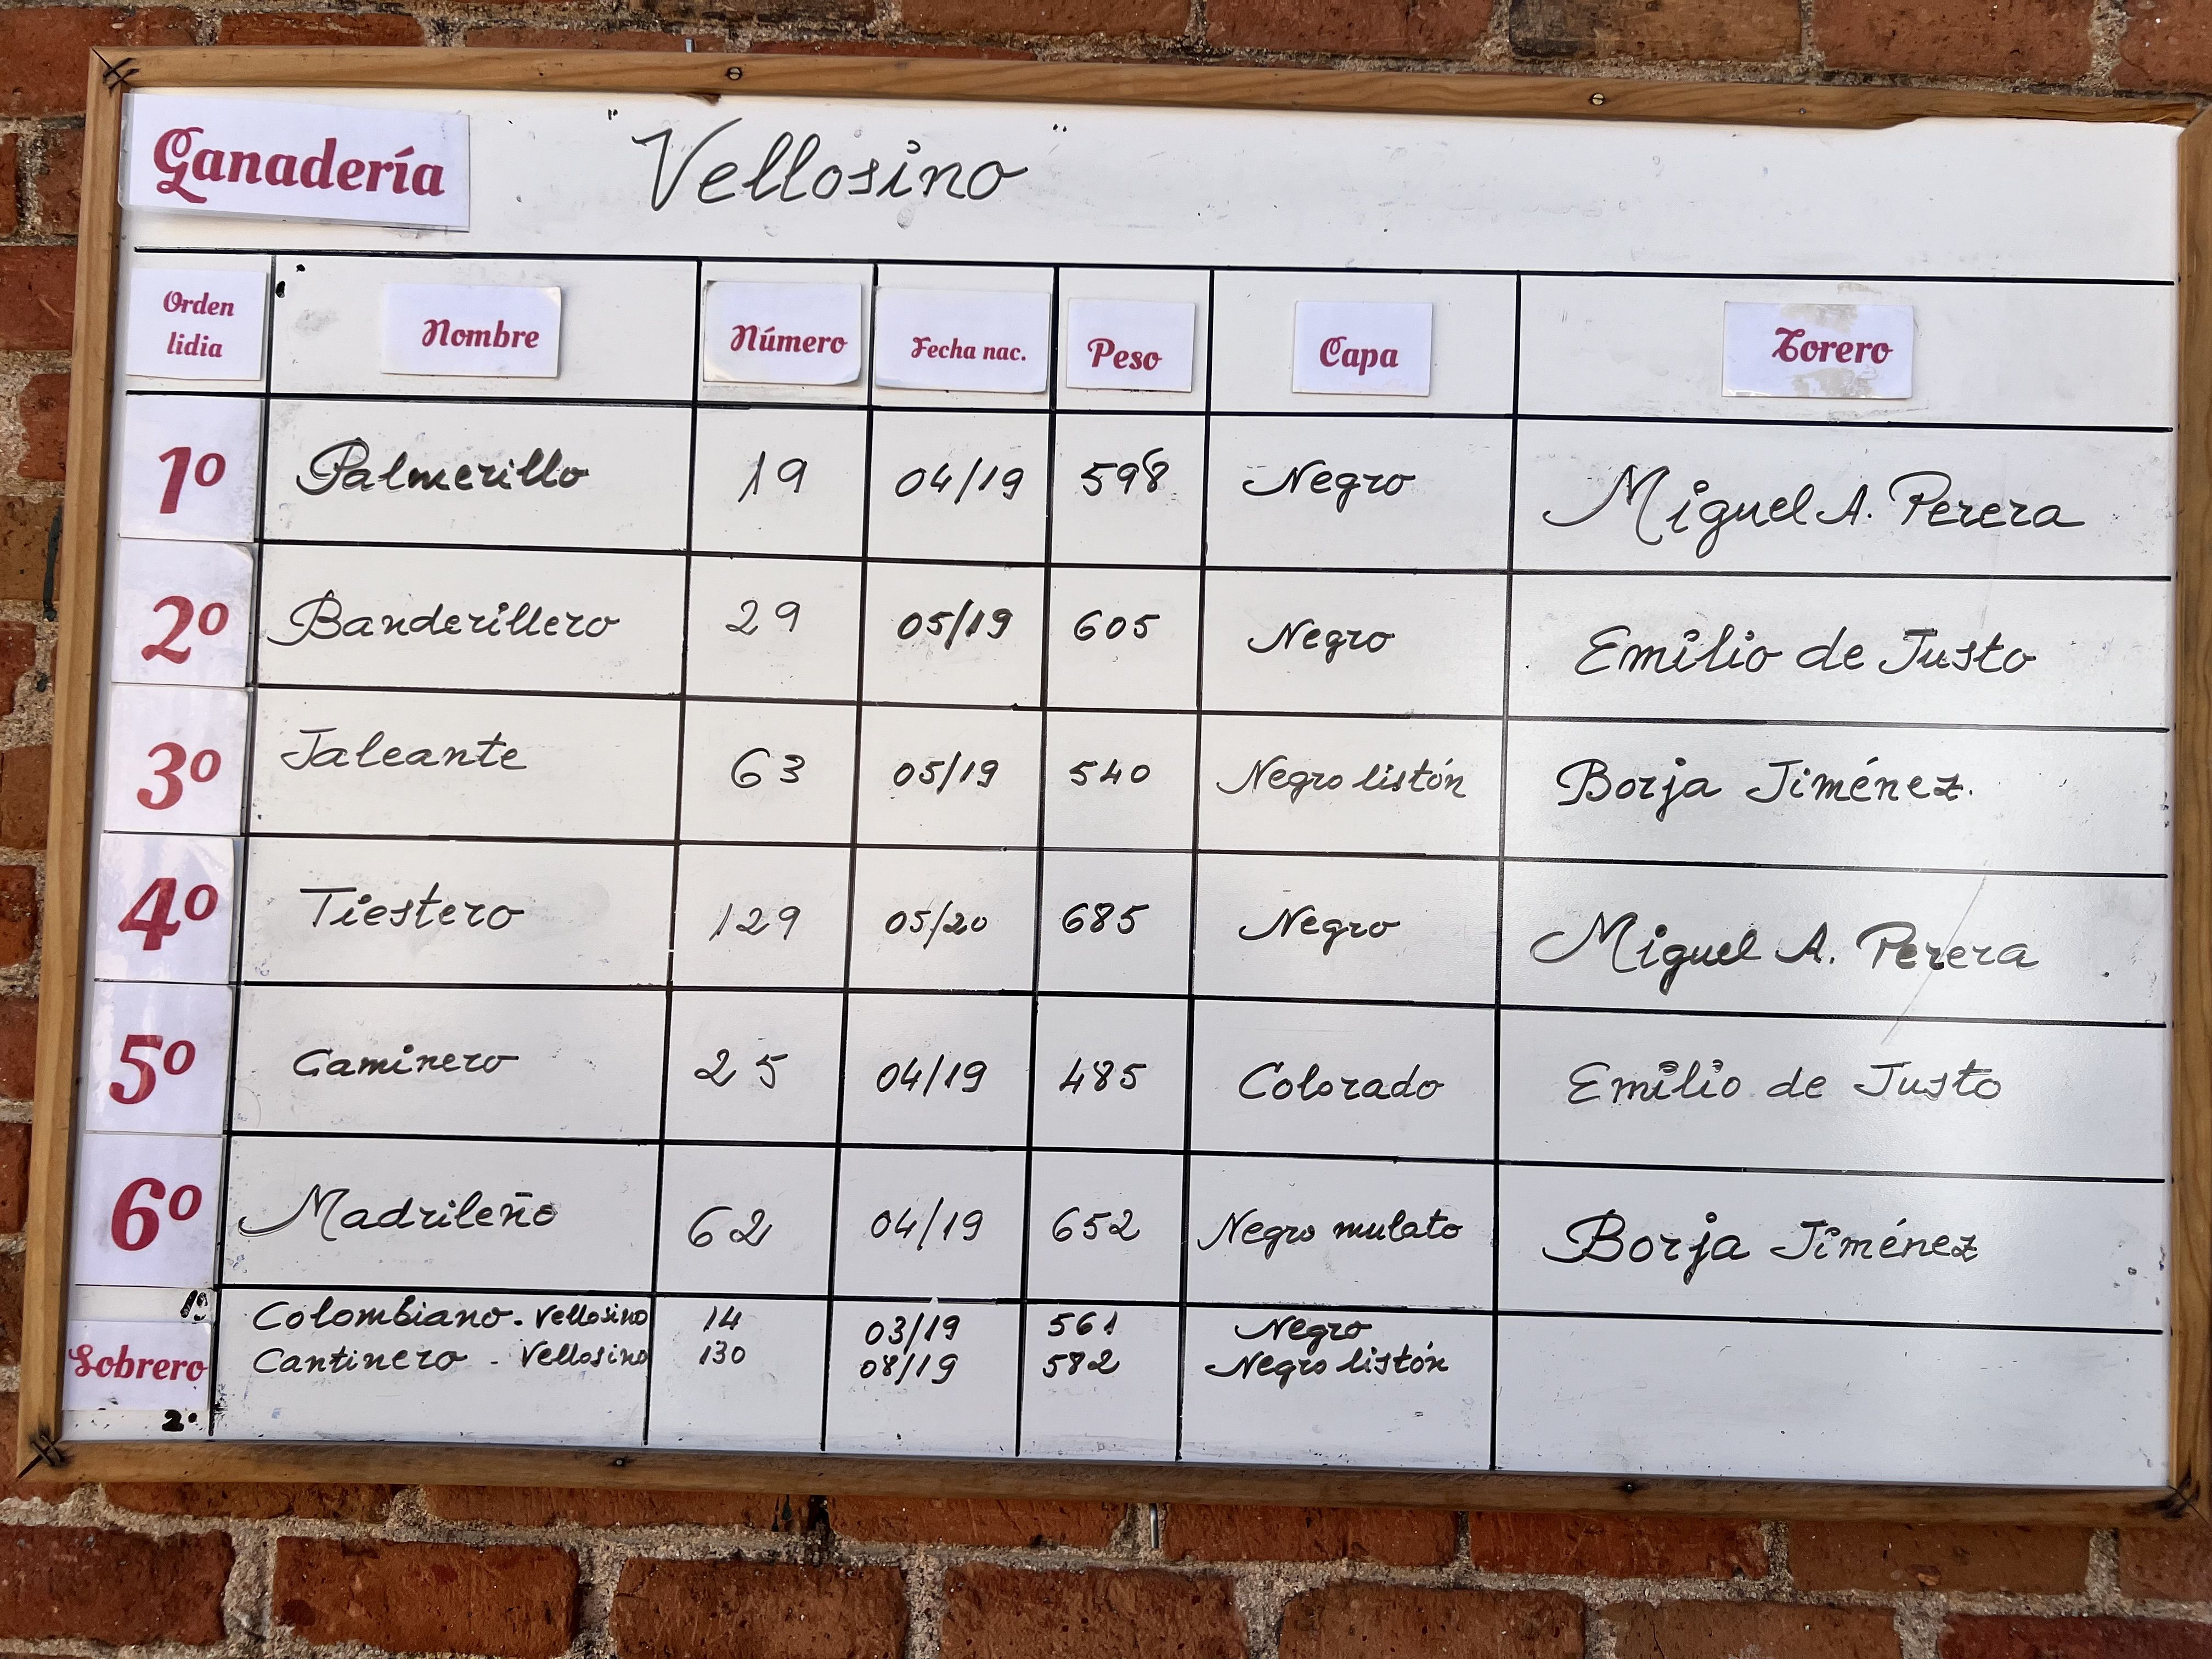 Ganadería "Vellosino"
Orden lidia Nombre Número Fecha nac. Peso Capa Torero
1º Palmerillo 19 04/19 598 Negro Miguel A. Perera
2º Banderillero 29 05/19 605 Negro Emilio de Justo
3º Jaleante 63 05/19 540 Negro listón Borja Jiménez.
4º Tiestero 129 05/20 685 Negro Miguel A. Perera
5º Caminero 25 04/19 485 Colorado Emilio de Justo
6º Madrileño 62 04/19 652 Negro mulato Borja Jiménez
1º Colombiano - Vellosino 14 03/19 561 Negro
Sobrero Cantinero - Vellosino 130 08/19 582 Negro listón
2º